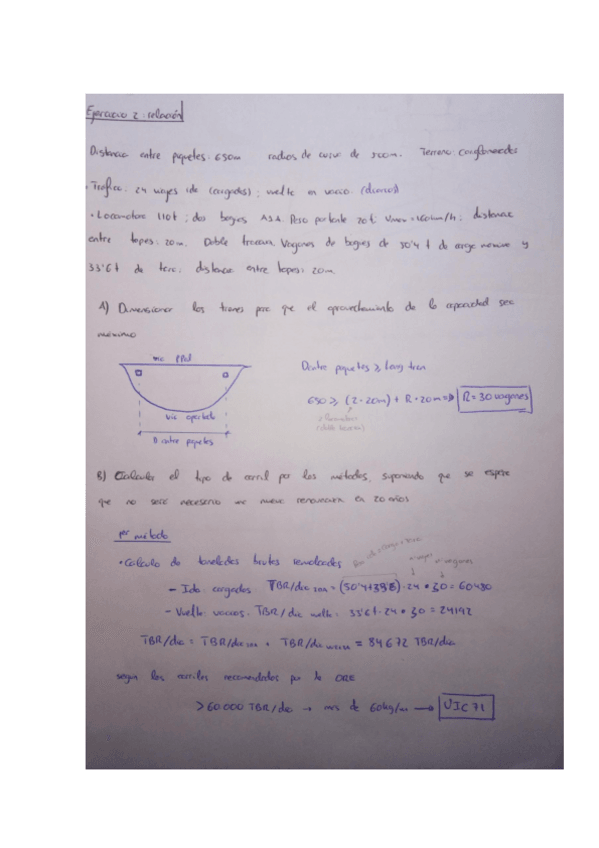 Ejercicio 2: relación
Distancia entre piquetes: 650m radios de curva de 500m. Terreno: conglomerados
· Tráfico: 24 viajes ida (cargados); vuelta en vacío. (diarios)
· Locomotora 110t; dos bogies Peso por eje 20t Vmax=160km/h; distancia
entre topes: 20m. Doble tracción. Vagones de bogies de 50'4 t de carga máxima y
33'6t de tara; distancia entre topes: 20m.
A) Dimensionar los trenes para que el aprovechamiento de la capacidad sea
máximo
vía ppal
vía apartado
D entre piquetes
Dentre piquetes ≥ long tren
650 ≥ (2·20m) + R·20m => R=30 vagones
2 locomotoras
(doble tracción)
B) Calcular el tipo de carril por los métodos, suponiendo que se espera
que no será necesario una nueva renovación en 20 años
1er método
· Cálculo de toneladas brutas remolcadas
- Ida: cargados. TBR/día ida = (50'4+33'6)·24·30=60480
- Vuelta: vacíos. TBR/día vuelta = 33'6t·24·30=24192
TBR/día = TBR/día ida + TBR/día vuelta = 84672 TBR/día
según los carriles recomendados por la ORE
>60000 TBR/día → más de 60kg/m → UIC 71